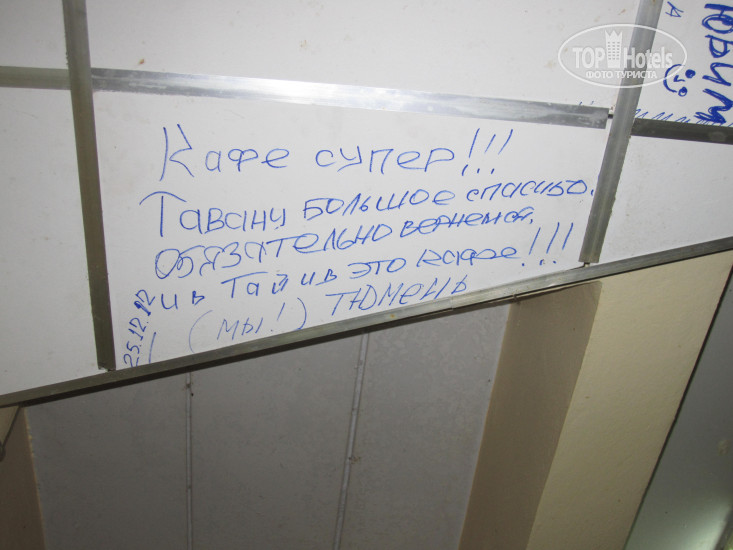 TOP Hotels
ФОТО ТУРИСТА
ЮБИМ
Кафе супер!!!
Тавану большое спасибо.
обязательно вернемся.
и в Тай и в это кафе!!!
(мы!) Тюмень
25.12.12